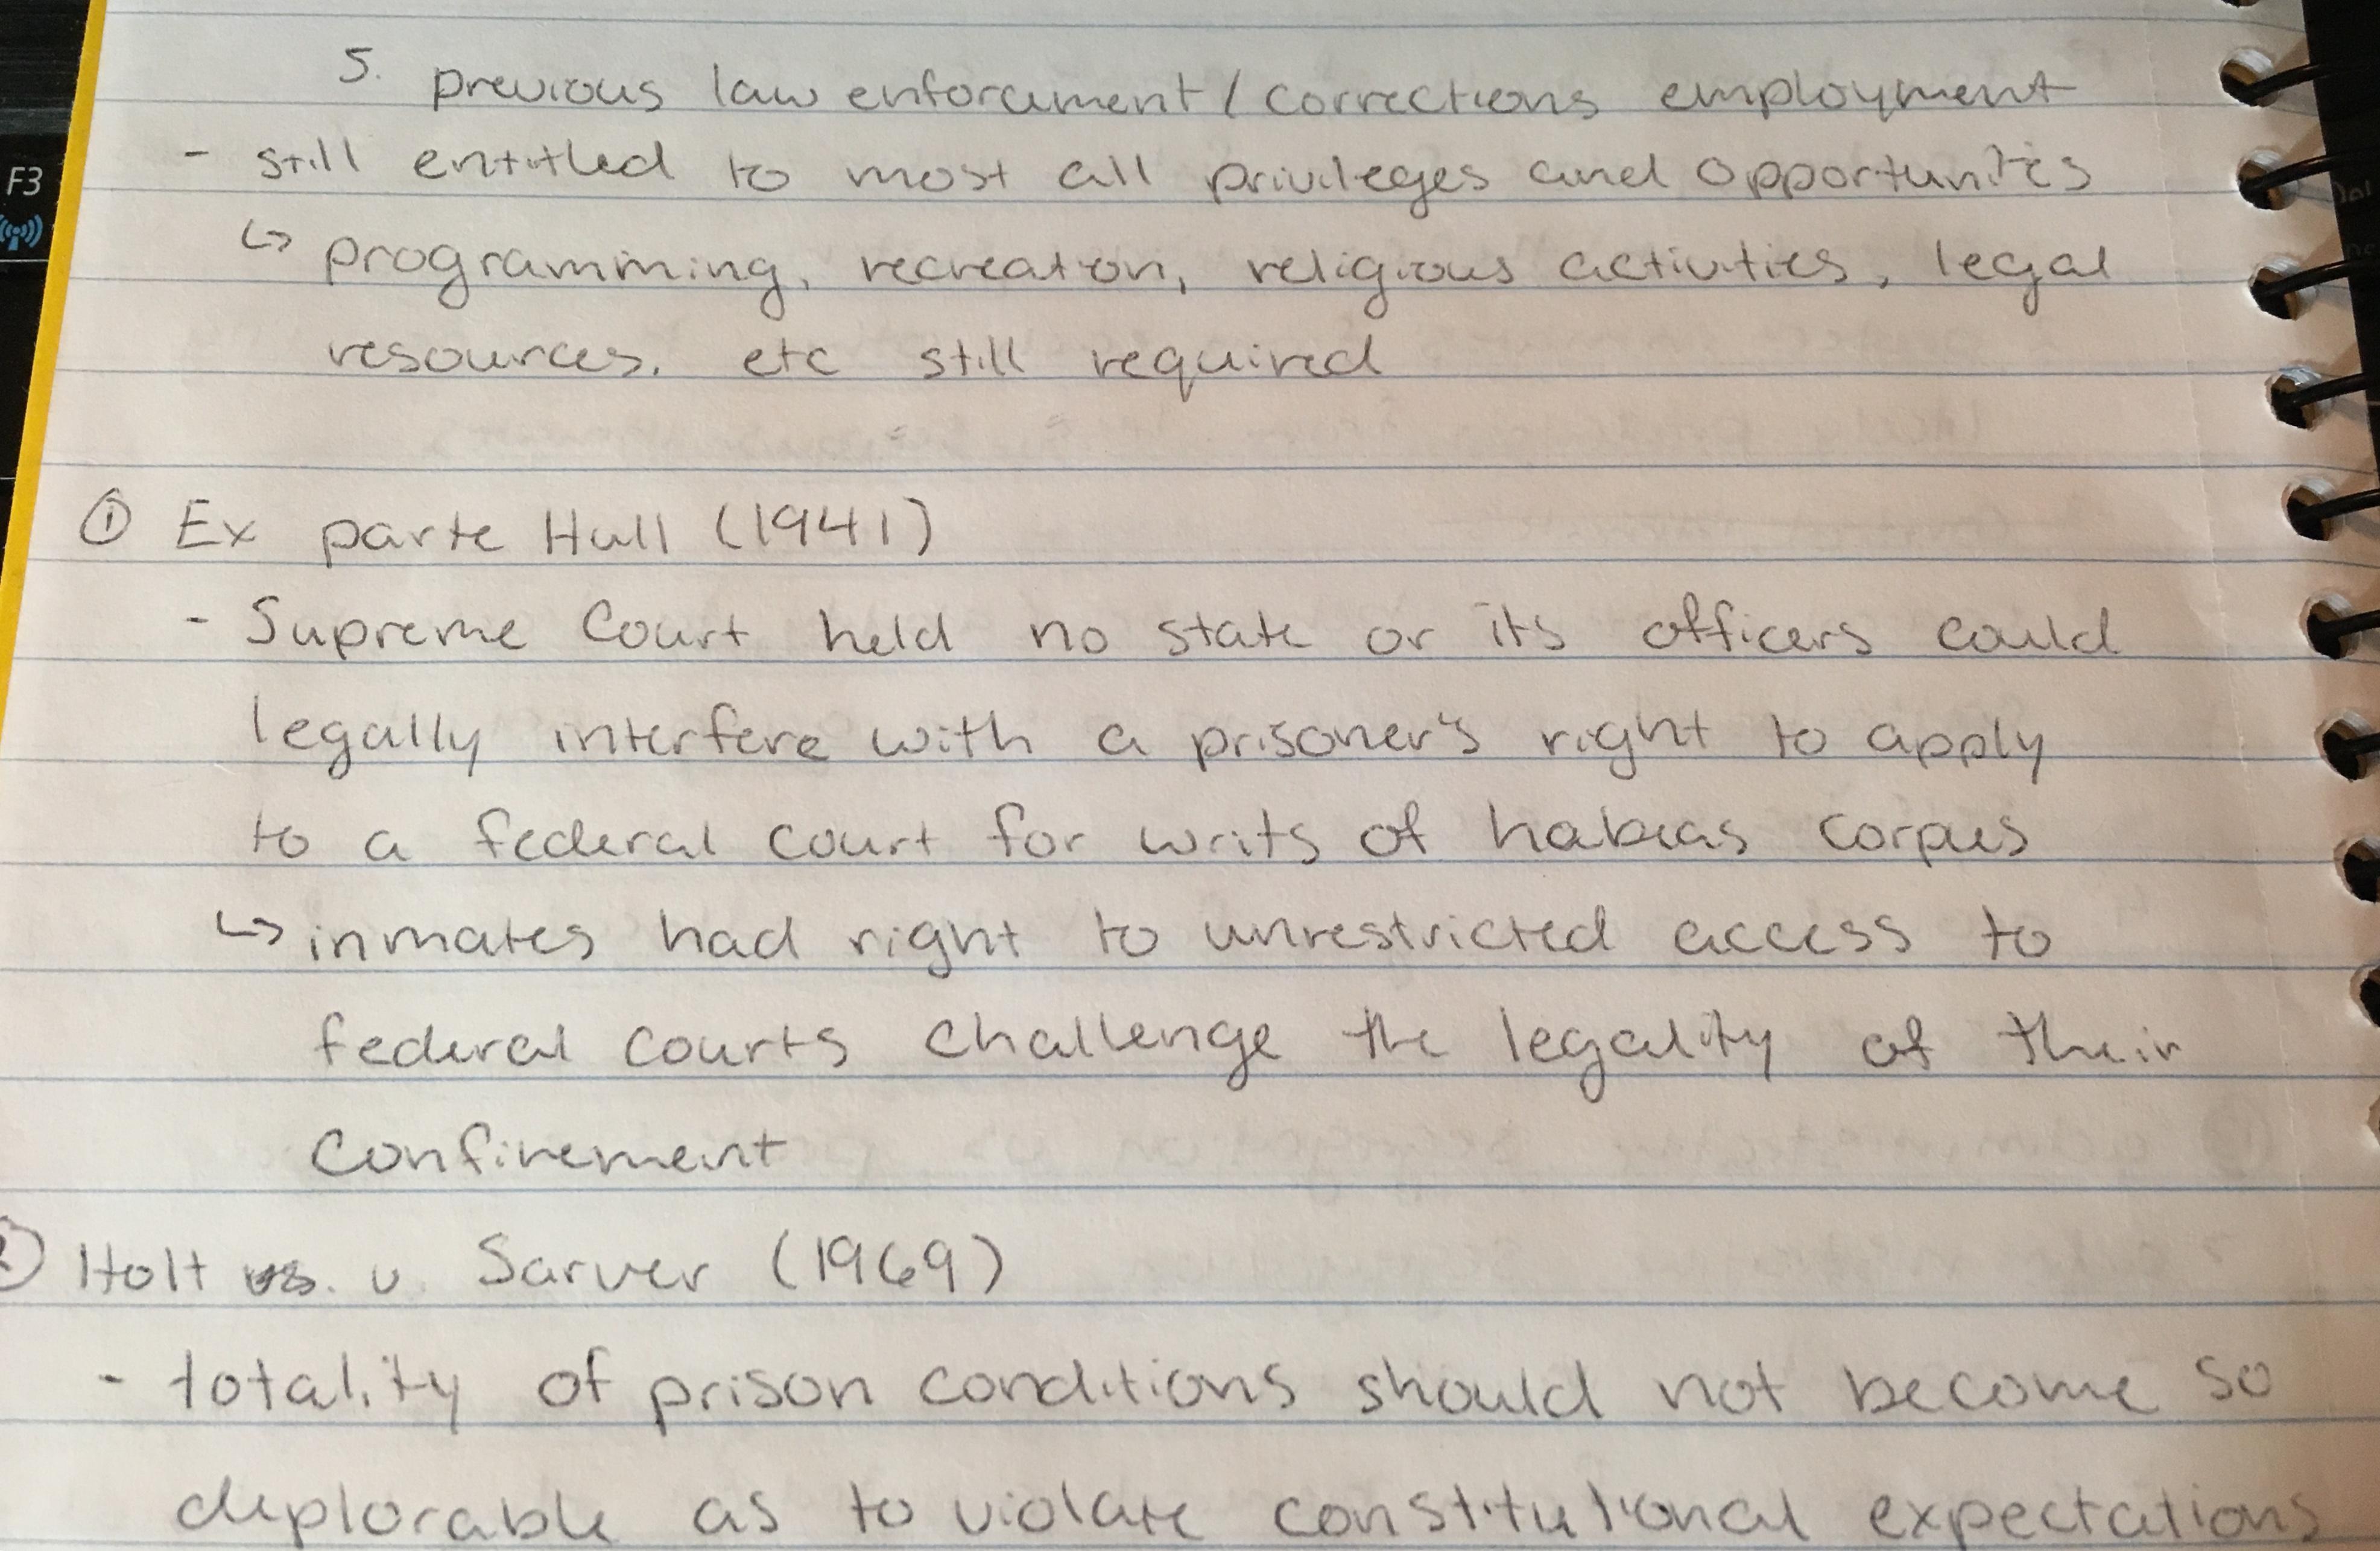 5. previous law enforcement / corrections employment
- still entitled to most all privileges and opportunites
↳ programming, recreation, religious activities, legal
resources, etc still required
① Ex parte Hull (1941)
- Supreme Court held no state or its officers could
legally interfere with a prisoner's right to apply
to a federal court for writs of habeas corpus
↳ inmates had right to unrestricted access to
federal courts challenge the legality of their
confinement
② Holt vs. v. Sarver (1969)
- totality of prison conditions should not become so
deplorable as to violate constitutional expectations
F3